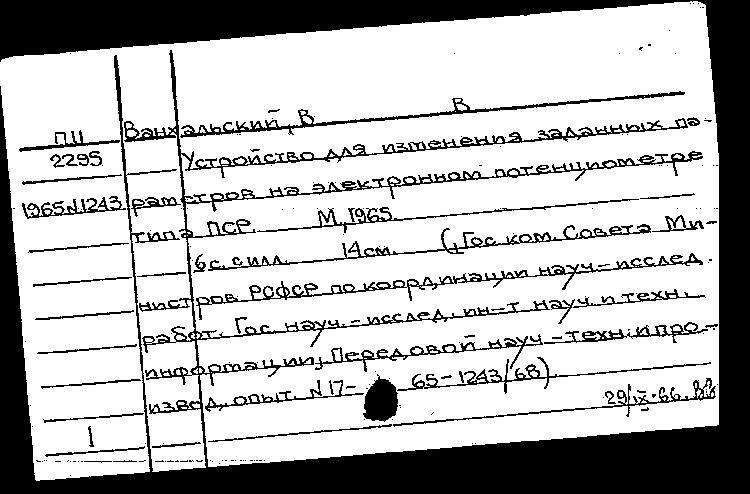 ПII Ванхальский, В В
2295 Устройство для изменения заданных па-
1965 N1243 раметров на электронном потенциометре
типа ПСР. М, 1965.
6 с. с илл. 14 см. (Гос. ком. Совета Ми-
нистров РСФСР по координации науч.-исслед.
работ. Гос. науч.-исслед. ин-т науч. и техн.
информации. Передовой науч.-техн. и про-
извод. опыт. N 17- 65-1243/68).
1 29/IX-66.